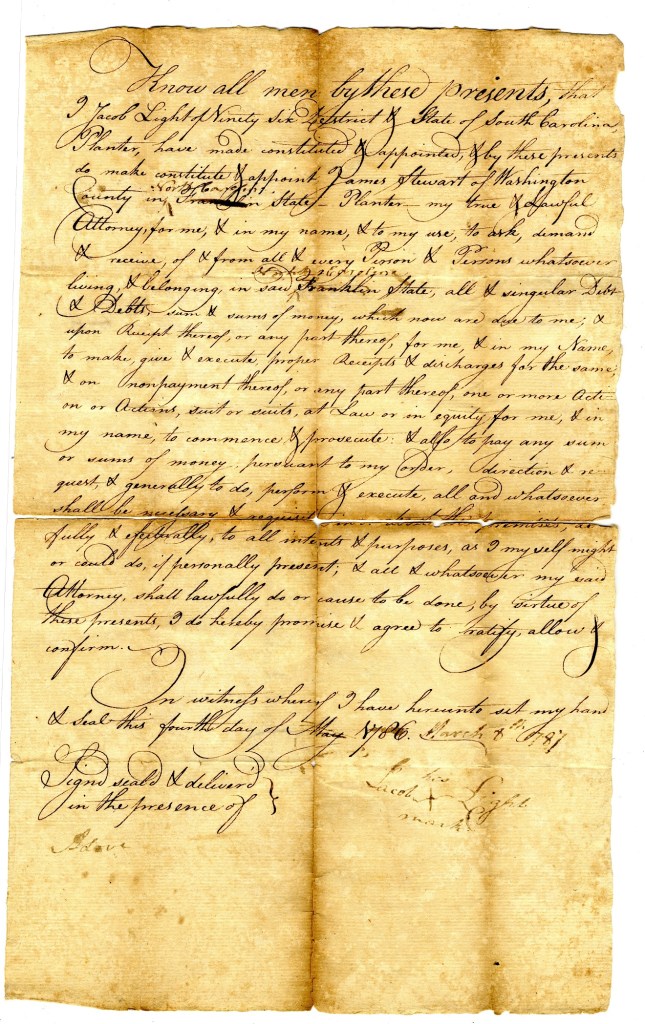 Know all men by these presents, that
I Jacob Light of Ninety Six District & State of South Carolina,
Planter, have made constituted & appointed, & by these presents
do make constitute & appoint James Stewart of Washington
North Carolina
County in Franklin State - Planter - my true & Lawful
Attorney, for me, & in my name, & to my use, to ask, demand
& receive, of & from all & every Person & Persons whatsoever
North Carolina
living, & belonging, in said Franklin State, all & singular Debt
& Debts, sum & sums of money, which now are due to me; &
upon Receipt thereof, or any part thereof, for me, & in my Name,
to make, give & execute proper Receipts & discharges for the same;
& on nonpayment thereof, or any part thereof, one or more Acti-
on or Actions, suit or suits, at Law or in equity, for me, & in
my name, to commence & prosecute: & also to pay any sum
or sums of money pursuant to my Order, direction & re-
quest, & generally to do, perform & execute, all and whatsoever
shall be necessary & requisite in & about the premises, as
fully & effectually, to all intents & purposes, as I my self might
or could do, if personally present; & all & whatsoever my said
Attorney, shall lawfully do or cause to be done, by virtue of
these presents, I do hereby promise & agree to ratify, allow &
confirm.
In witness whereof I have hereunto set my hand
& seal this fourth day of May 1786. March 8th 1787
Signd seald & deliverd
in the presence of
his
Jacob X Light
mark